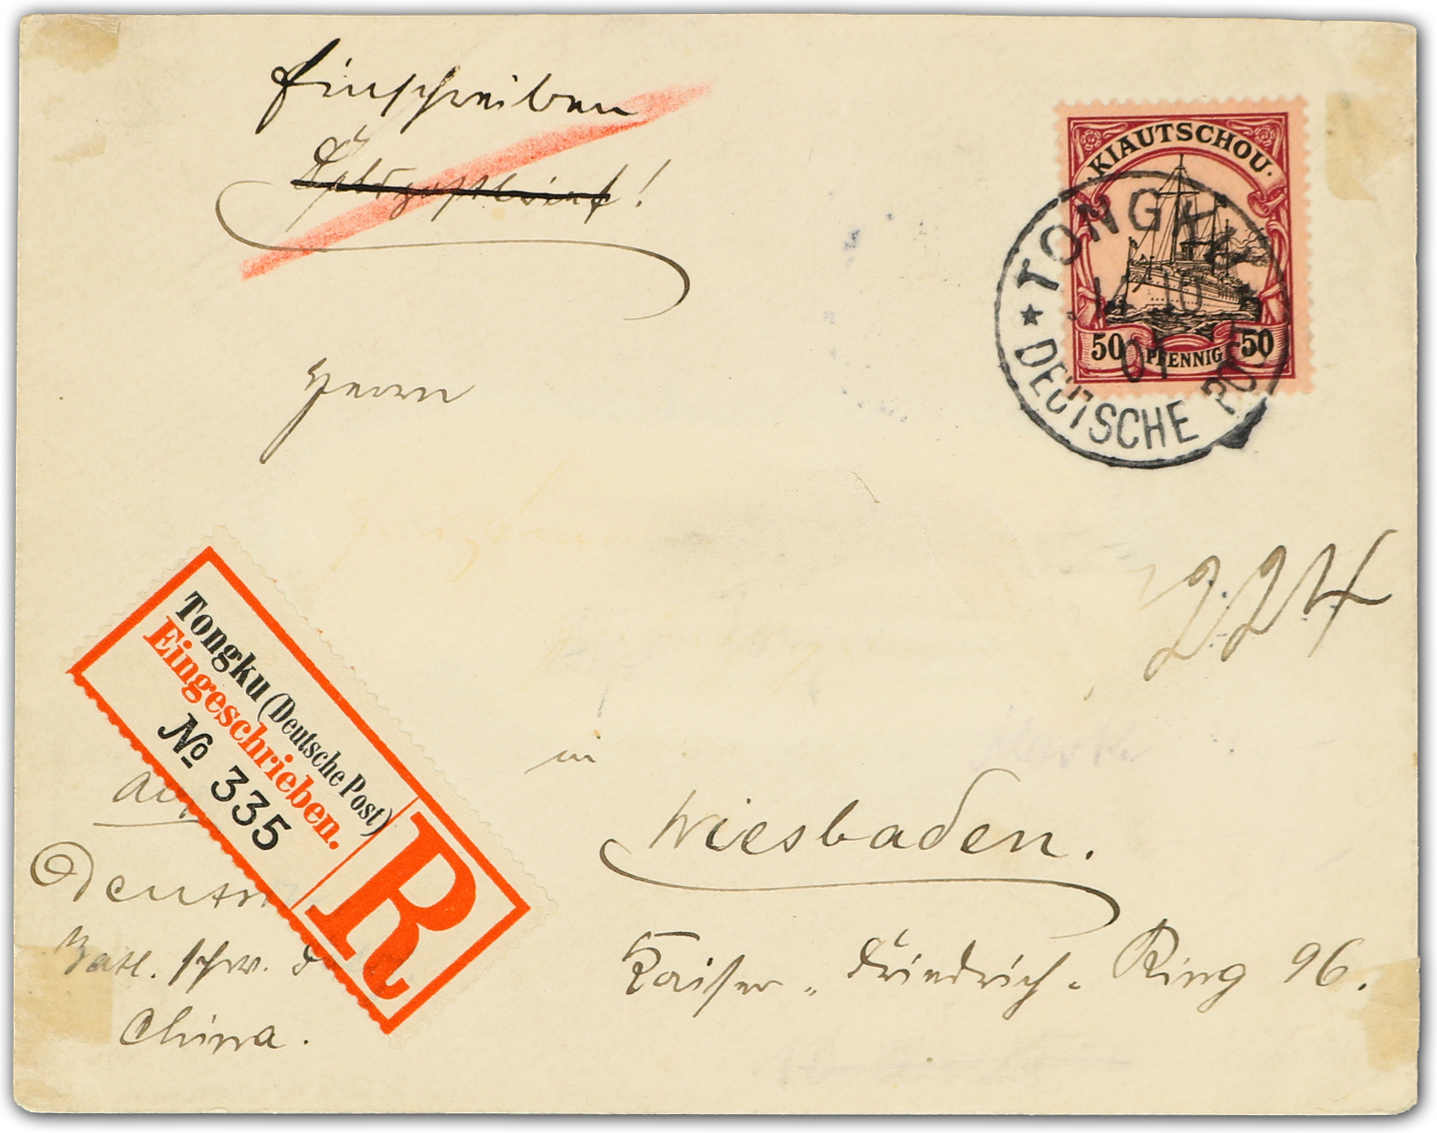 Einschreiben
Feldpostbrief!
KIAUTSCHOU.
50 PFENNIG 50
TONGKU
14 10
01
★ DEUTSCHE POST
Herrn
224
Tongku (Deutsche Post)
Eingeschrieben.
№ 335
R
in
Wiesbaden.
Kaiser-Friedrich-Ring 96.
schw.
China.